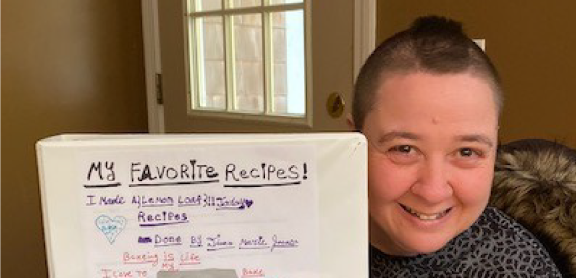 My FAVORITE Recipes!
I Made A Lemon Loaf!!! Today
Recipes
Done By Marie
Boxing Is Life
I Love To My Bake